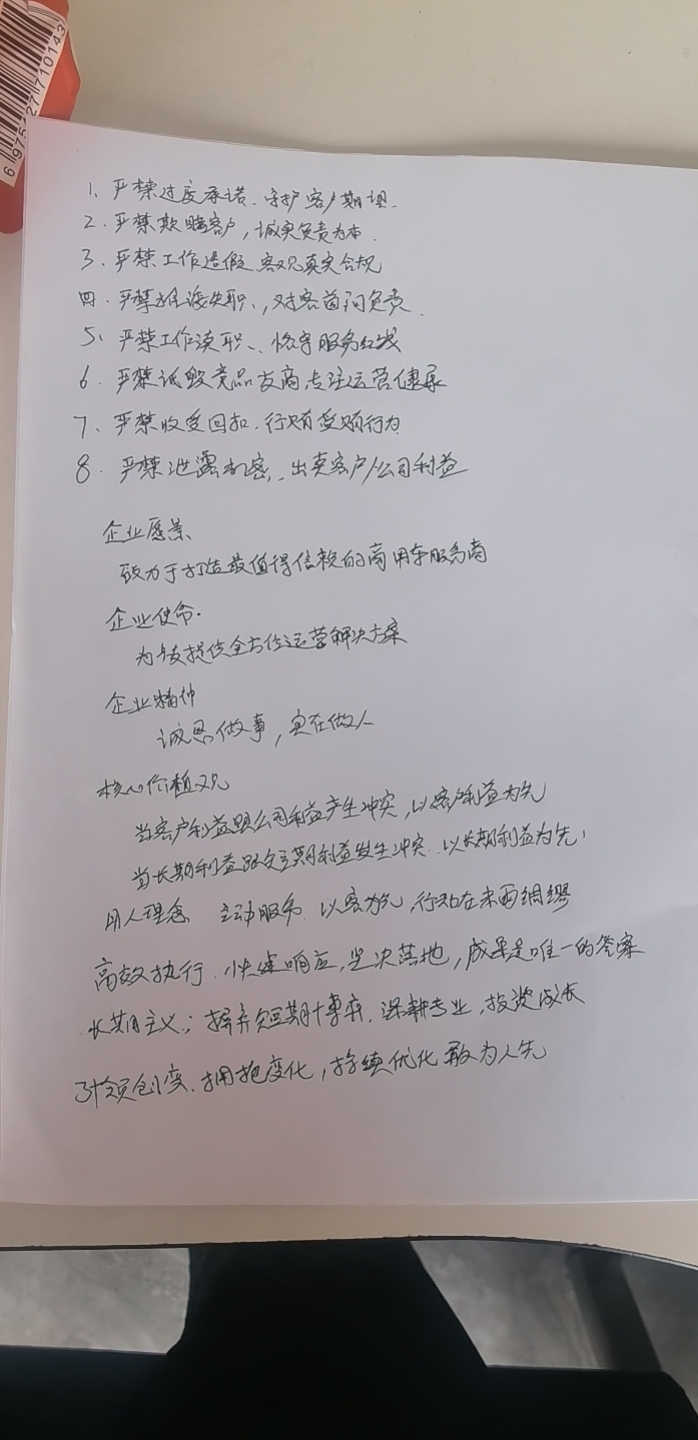 6 975127 710143
1、严禁过度承诺、守护客户期望.
2、严禁欺瞒客户，诚实负责为本.
3、严禁工作造假 客观真实合规
四、严禁推诿失职、对客首问负责.
5、严禁工作渎职、恪守服务红线
6、严禁诋毁竞品友商,专注运营健康
7、严禁收受回扣、行贿受贿行为
8、严禁泄露机密、出卖客户/公司利益
企业愿景、
致力于打造最值得信赖的商用车服务商
企业使命.
为 提供全方位运营解决方案
企业精神
诚恳做事，实在做人
核心价值观
当客户利益跟公司利益产生冲突，以客户利益为先
当长期利益跟 短期利益发生冲突、以长期利益为先，
用人理念 主动服务、以客为先，行动在未雨绸缪
高效执行、快速响应，坚决落地，成果是唯一的答案
长期主义；摒弃短期博弈、深耕专业，投资成长
引领创变、拥抱变化，持续优化 敢为人先